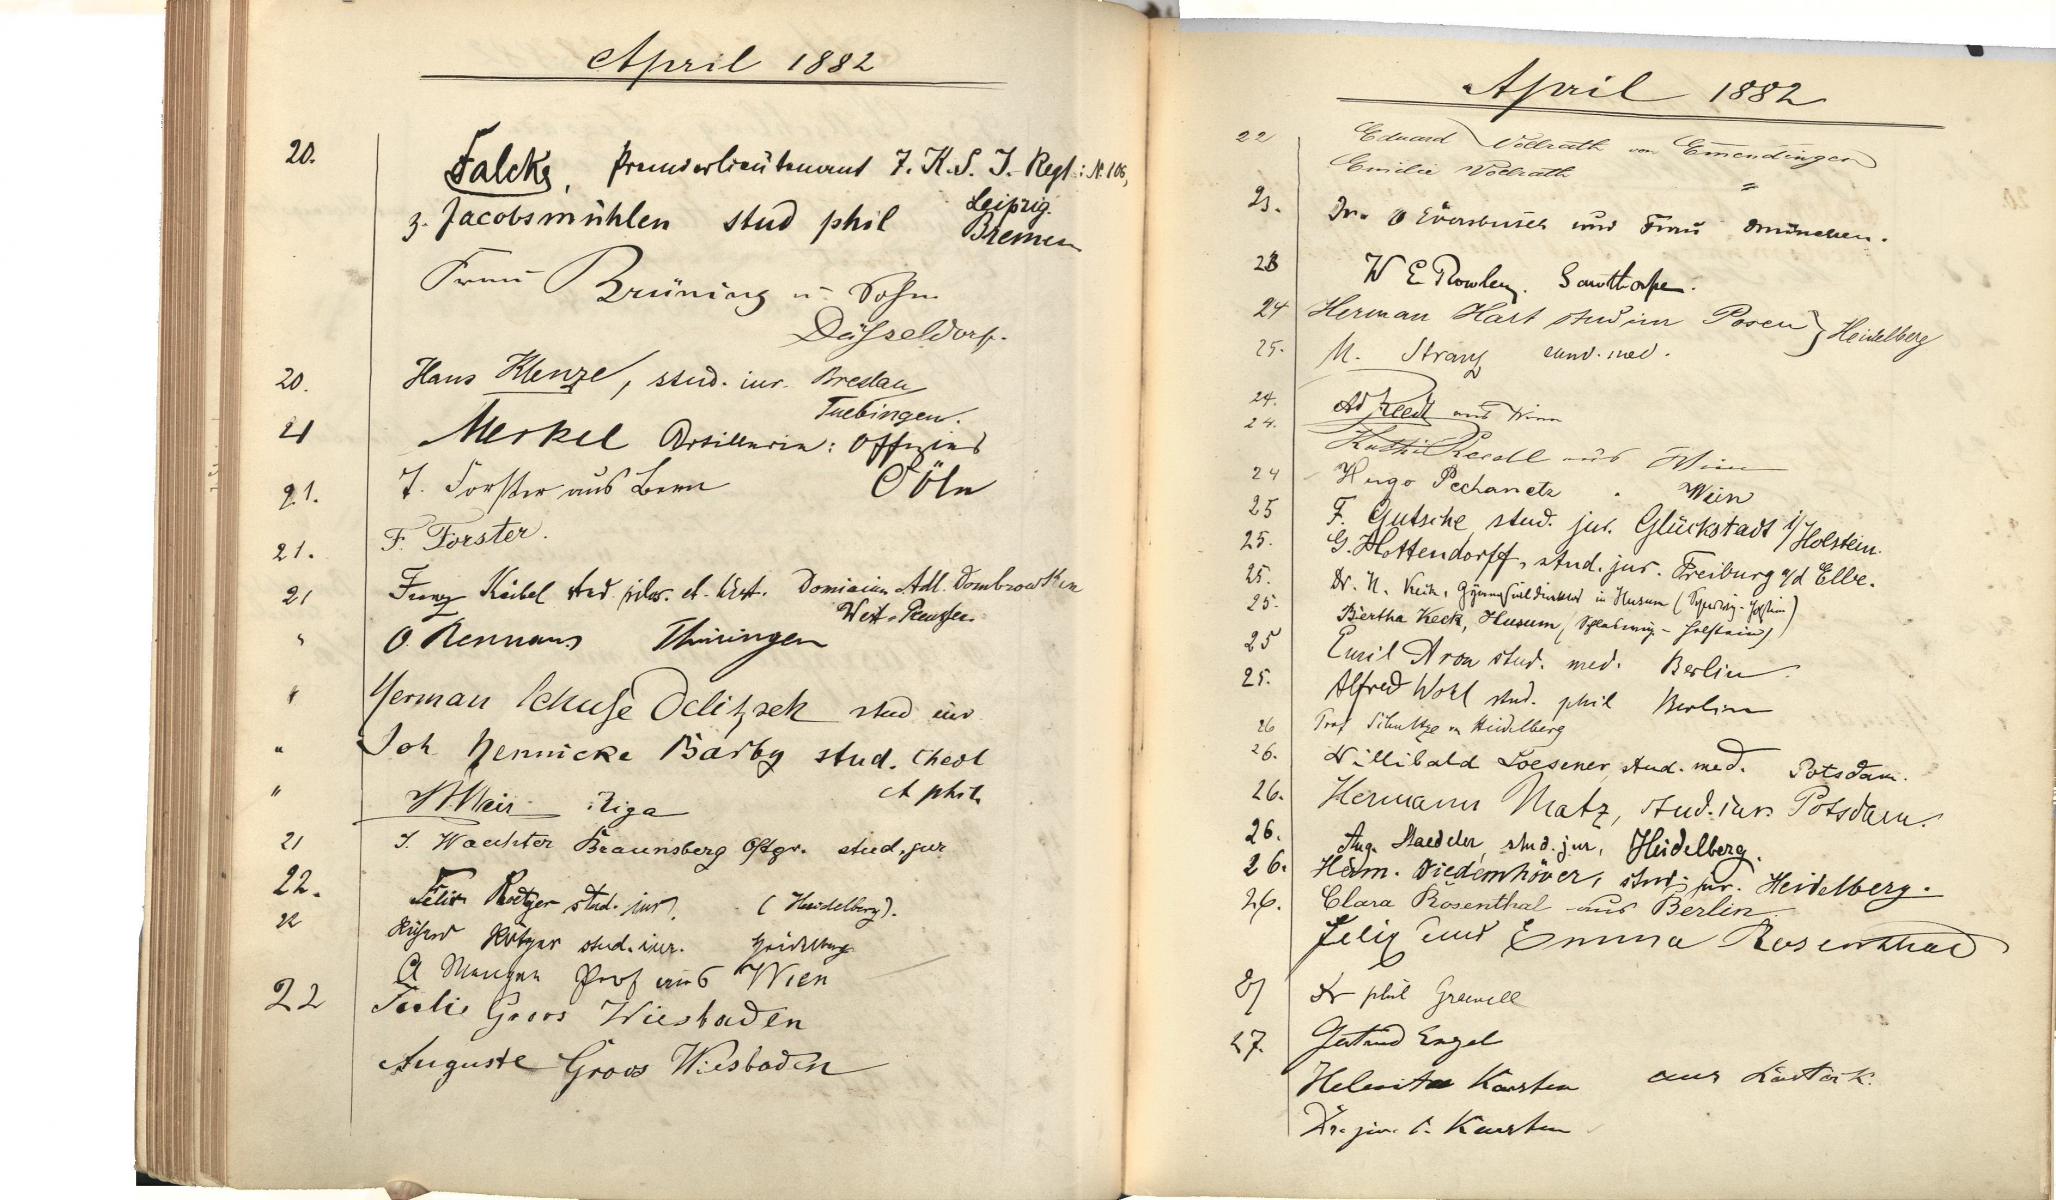 April 1882
20. Falcke, Premierlieutenant 7. K. S. I.-Regt: N. 106,
Leipzig.
z. Jacobsmühlen stud phil Bremen
Frau Brüning u Sohn
Düsseldorf.
20. Hans Klenze, stud. iur. Breslau
Tuebingen.
21 Merkel Artillerie: Offizier
Cöln
21. F. Forster aus Bern
21. F. Forster.
21 Franz Keibel stud. philos. et. hist. Dominium Adl. Dombrowken
West-Preußen
" O. Rennans Thüringen
" Herman Schulse Delitzsch stud iur
" Joh Hennicke Barby stud. theol
et phil.
" Meir Riga
21 J. Waechter Braunsberg Ostpr. stud. jur
22. Felix Roetger stud. jur. (Heidelberg).
22 Rötger stud. iur. Heidelberg
A Prof aus Wien
22 Julie Groos Wiesbaden
Auguste Groos Wiesbaden
April 1882
22 Eduard Vollrath von Emendingen
Emilie Vollrath "
23. Dr. O Eversbusch und Frau München.
23 W E Rowley. Sawthorpe.
24 Herman Hart stud im Posen } Heidelberg
25. M. Stranz cand. med.
24. aus Wien
24. aus Wien
24 Hugo Pechanetz . Wien
25 F. Gutsche, stud. jur. Glückstadt i/Holstein.
25. G. Hottendorff, stud. jur. Freiburg a/d Elbe.
25. Dr. H. Keck, Gymnasialdirektor in Husum (Schleswig-Holstein)
25. Bertha Keck, Husum, (Schleswig-Holstein)
25 Emil Aron stud. med. Berlin.
25. Alfred Wohl stud. phil Berlin
26 Prof Schultze v Heidelberg
26. Willibald Loesener, stud. med. Potsdam.
26. Hermann Matz, stud. iur. Potsdam.
26. Aug. Staedeler, stud. jur, Heidelberg.
26. Herm. Diedenhöver, stud. jur. Heidelberg.
26. Clara Rosenthal aus Berlin
Felix und Emma Rosenthal
27 Dr phil Grawell
27. Gertrud Engel
Helenita Karsten aus Rostock.
Dr. jur. C. Karsten